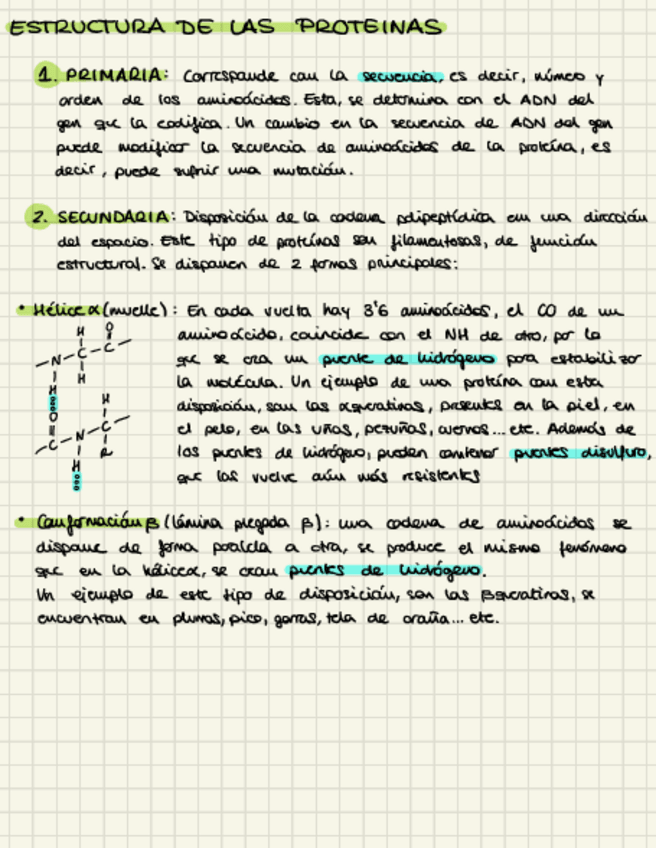 ESTRUCTURA DE LAS PROTEINAS
1. PRIMARIA: Corresponde con la secuencia, es decir, número y
orden de los aminoácidos. Esta, se determina con el ADN del
gen que la codifica. Un cambio en la secuencia de ADN del gen
puede modificar la secuencia de aminoácidos de la proteína, es
decir, puede sufrir una mutación.
2. SECUNDARIA: Disposición de la cadena polipeptídica em una dirección
del espacio. Este tipo de proteínas son filamentosas, de función
estructural. Se disponen de 2 formas principales:
• Hélice α (muelle): En cada vuelta hay 3'6 aminoácidos, el CO de un
aminoácido, coincide con el NH de otro, por lo
que se crea un puente de hidrógeno para estabilizar
la molécula. Un ejemplo de una proteína con esta
disposición, son las αqueratinas, presentes en la piel, en
el pelo, en las uñas, pezuñas, cuernos... etc. Además de
los puentes de hidrógeno, pueden contener puentes disulfuro,
que las vuelve aún más resistentes
H O
-N-C-C-
H H
O H
C-N-C-
H R
• Conformación β (lámina plegada β): una cadena de aminoácidos se
dispone de forma paralela a otra, se produce el mismo fenómeno
que en la héliceα, se crean puentes de hidrógeno.
Un ejemplo de este tipo de disposición, son las βqueratinas, se
encuentran en plumas, pico, garras, tela de araña... etc.